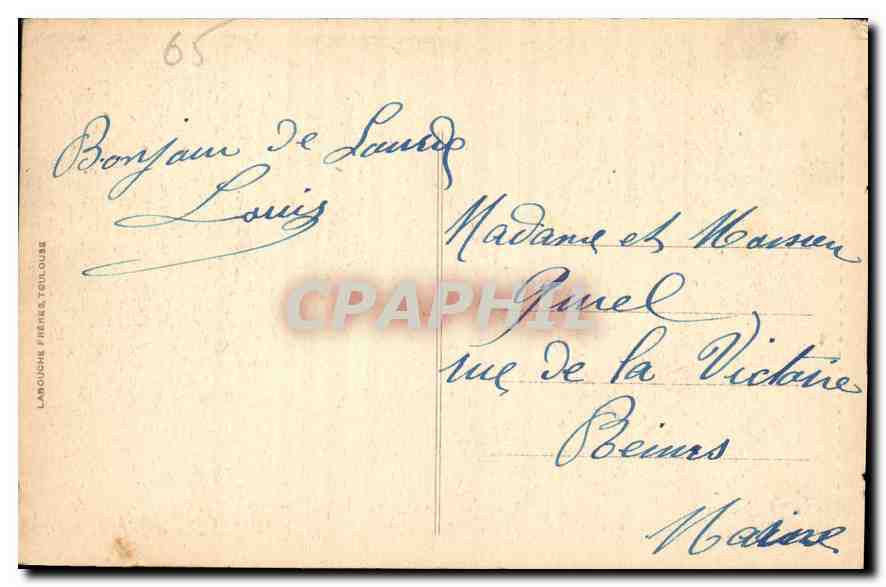 65
Bonjour de Lourde
Louis
LABOUCHE FRÈRES, TOULOUSE
Madame et Monsieu
rue de la Victoire
Reims
Marne
CPAPHIL